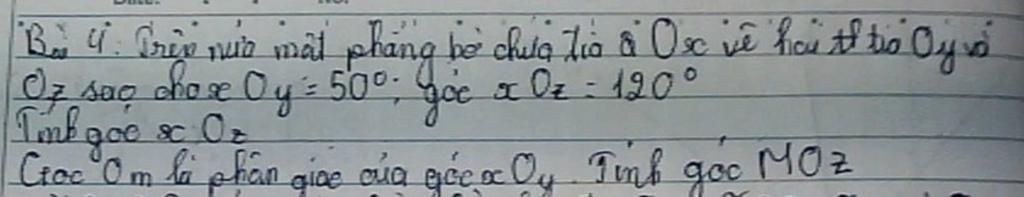 Bài 4: Trên nửa mặt phẳng bờ chứa tia Ox vẽ hai tia Oy và
Oz sao cho xOy = 50°; góc xOz = 120°
Tính góc xOz
Góc Om là phân giác của góc xOy. Tính góc MOZ